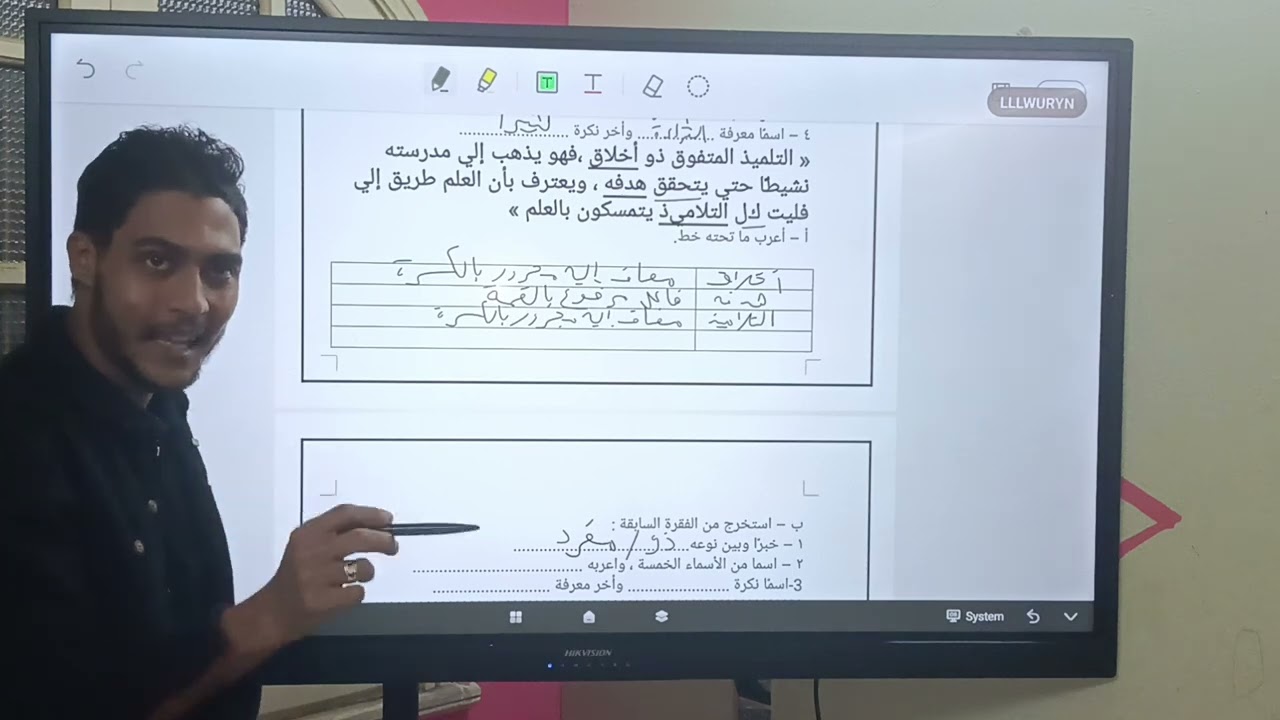 LLLWURYN
٤ – اسمًا معرفة ............ وأخر نكرة ............
« التلميذ المتفوق ذو أخلاق ،فهو يذهب إلي مدرسته
نشيطًا حتي يتحقق هدفه ، ويعترف بأن العلم طريق إلي
فليت كل التلاميذ يتمسكون بالعلم »
أ – أعرب ما تحته خط.
أخلاق مضاف إليه مجرور بالكسرة
هدفه فاعل مرفوع بالضمة
التلاميذ مضاف إليه مجرور بالكسرة
ب – استخرج من الفقرة السابقة :
١ – خبرًا وبين نوعه... ذو / مفرد
٢ – اسما من الأسماء الخمسة ، وأعربه ............
3-اسمًا نكرة ............ وأخر معرفة ............
System
HIKVISION